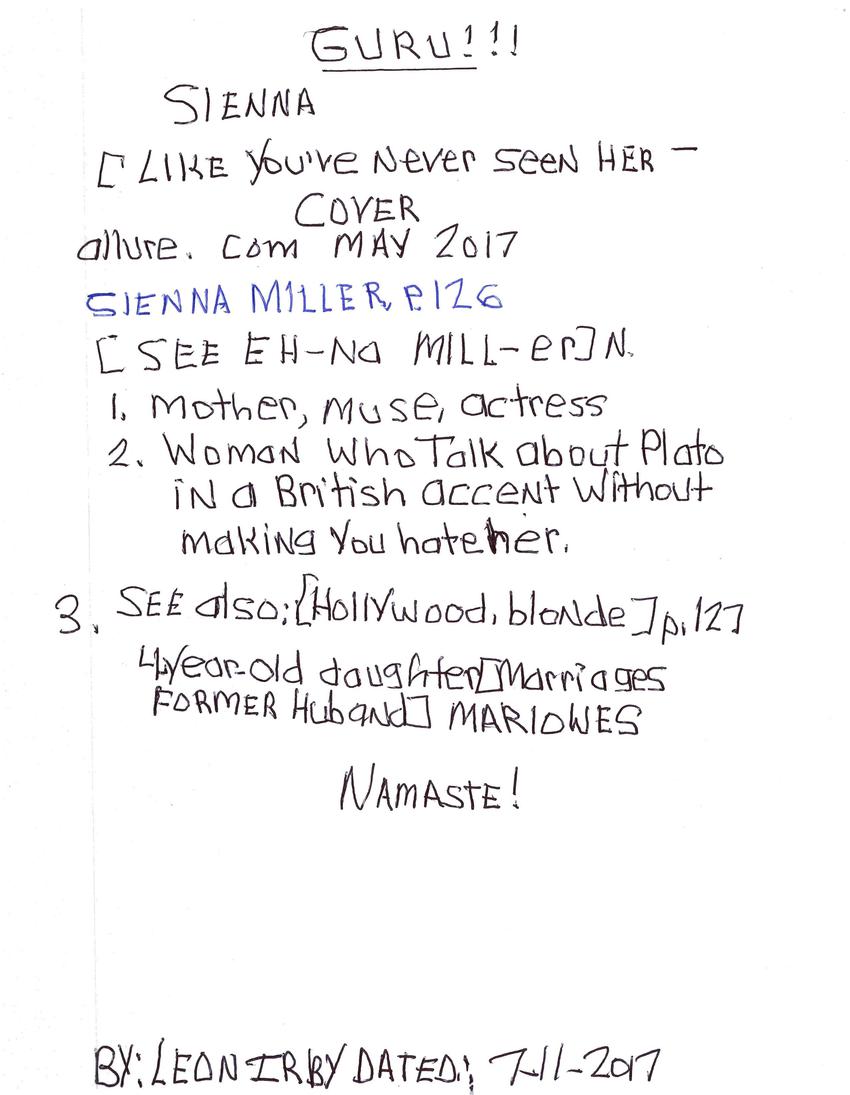 GURU!!!
SIENNA
[ LIKE You've Never seeN HER -
COVER
allure. com MAY 2017
SIENNA MILLER, P126
[ SEE EH-Na MILL-er] N.
1. Mother, Muse, actress
2. WomaN Who Talk about Plato
iN a British acceNt Without
makiNg You hate her.
3. SEE also; [HollyWood, bloNde ] p.127
4year-old daughter [Marriages
FORMER HubaNd] MARLOWES
NAMASTE!
BY: LEON IRBY DATED; 7-11-2017